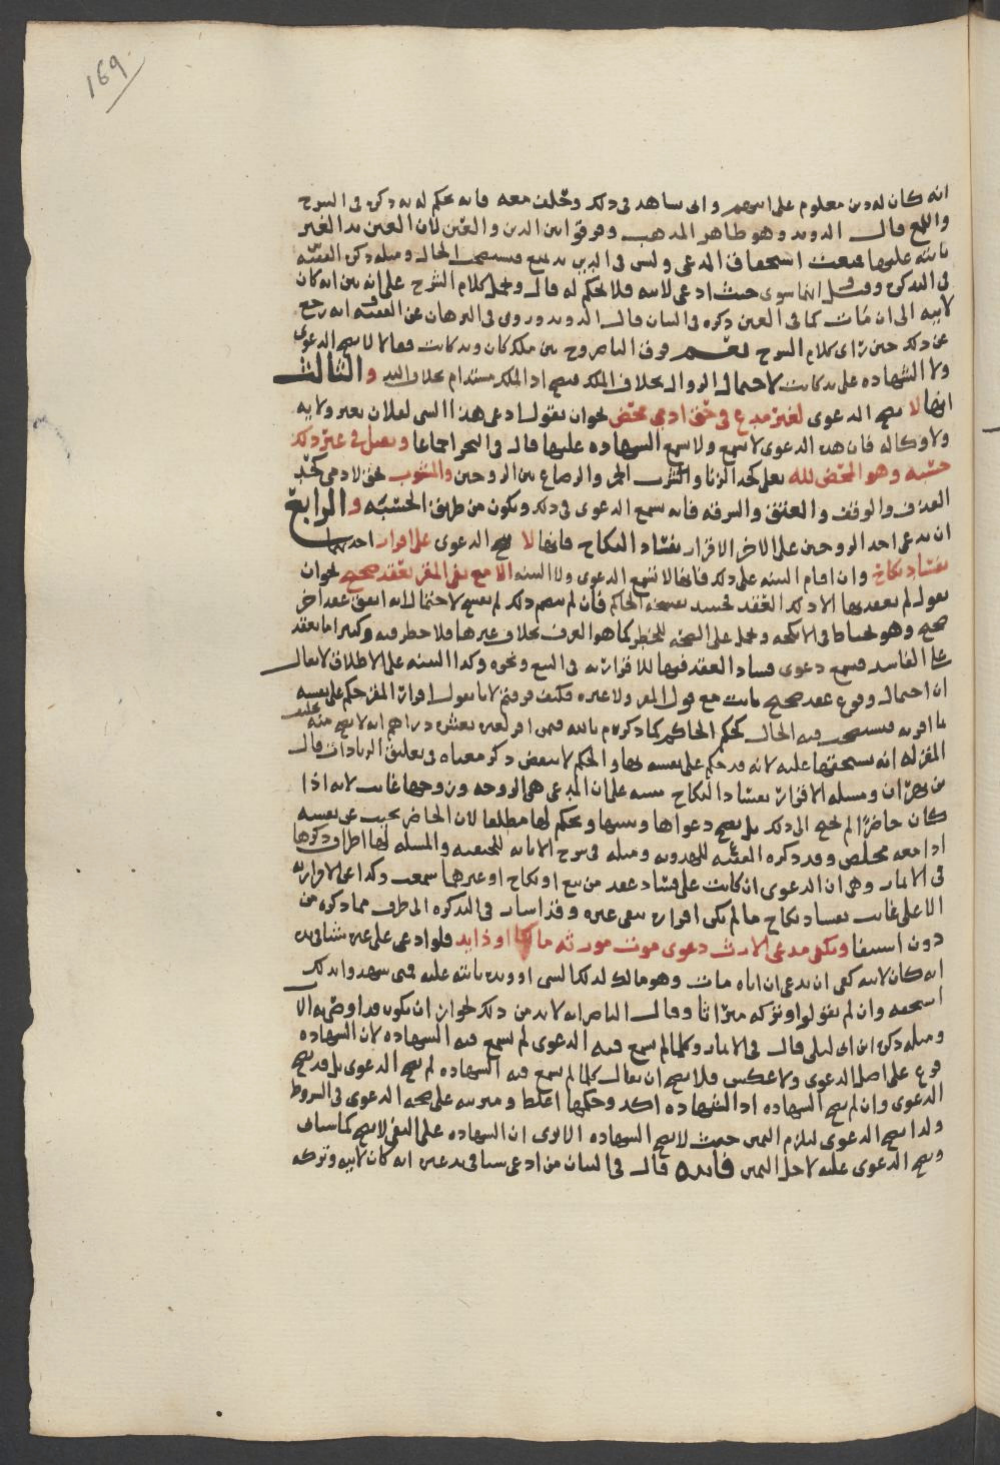 169
انه كان له دين معلوم على امرء واتى بشاهد في ذلك وحلف معه فانه يحكم له به ذكره في الشرح
واللمع قال الدويد وهو ظاهر المذهب وفرقوا بين الدين والعين لان العين يد الغير
ثابته عليها فيثبت استحقاق المدعي وليس في الدين يد فيستصحب الحال ومثله ذكره الفقيه
في التذكرة وقيل انهما سوى حيث ادعى لابيه فلا يحكم له قال وتحمل كلام الشرح على انه بين انه كان
لابيه الى ان مات كما في العين ذكره في البيان قال الدويد وروي في البرهان عن الفقيه انه رجع
عن ذلك حين رأى كلام الشرح نعم فرق الناصر وح بين ملك كان ويد كانت فقالا لا يصح الدعوى
ولا الشهاده على يد كانت لاحتمال الزوال بخلاف الملك فيصح اذ الملك مستدام بخلاف اليد والثالث
انها لا يصح الدعوى لغير مدع في حق ادمي محض نحو ان يقول ادعي هذا الشي لفلان بغير ولايه
ولا وكاله فان هذه الدعوى لا تسمع ولا تسمع الشهاده عليها قال في البحر اجماعا ويصل في غير ذلك
حسبه وهو المحض لله تعلى كحد الزنا والشرب الخمر والرضاع بين الزوجين والمشوب بحق لادمي كحد
القذف والوقف والعتق والسرقه فانه تسمع الدعوى في ذلك ويكون من طريق الحسبه والرابع
ان يدعي احد الزوجين على الاخر الاقرار بفساد النكاح فانها لا تصح الدعوى على اقرار احدهما
بفساد نكاح وان اقام البينه على ذلك فانها لا تسمع الدعوى ولا البينه الا مع نفي المقر بعقد صحيح نحو ان
يقول لم يعقد بها الا ذلك العقد فحينئذ بصحه الحاكم فان لم يضم ذلك لم يصح لاحتمال انه اتفق عقد اخر
صحيح وهو يحتاط في الانكحه ويحمل على الصحه للخطر كما هو العرف بخلاف غيرها فلا حظر فيه وكثيرا ما يعقد
على الفاسد فيسمع دعوى فساد العقد فيها للاقرار به في البيع ونحوه وكذا البينه على الاطلاق لا يقال
ان احتمال وقوع عقد صحيح ثابت مع قول المقر ولا غيره فكيف فرقتم لانا نقول اقرار المقر حكم على نفسه
بما اقر به فيستصحب فيه الحال كحكم الحاكم كما ذكره م بالله فيمن اقر لغيره بعشره دراهم انه لا يصح منه
المقر له انه يستحقها عليه لانه قد حكم على نفسه بها والحكم لا ينقض ذكر معناه في تعليق الزيادات قال
من بهران ومسله الاقرار بفساد النكاح مبنيه على ان المدعي هي الزوجه وزوجها غايب لانه اذا
كان حاضرا لم يحتج الى ذلك بل يصح دعواها وبينتها ويحكم لها مطلقا لان الحاضر يجيب عن نفسه
اذا معه مخلص وقد ذكره الفقيه للهدويه ومثله في شرح الابانه للحنفيه والمسله لها اطراف ذكرها
في الاثمار وهي ان الدعوى ان كانت على فساد عقد من بيع او نكاح او غيرهما سمعت وكذا على الاقرار به
الا على غايب بفساد نكاح ما لم يكن اقراره بنفي غيره وقد اشار في التذكره الى طرف مما ذكره من
دون استيفا ويكفي مدعي الارث دعوى موت مورثه مالكا او ذا يد فلو ادعى على غيره شيا في يده
انه كان لابيه كفى ان يدعي ان اباه مات وهو مالك لذلك الشي او ويده ثابته عليه فمتى شهدوا بذلك
استحقه وان لم يقولوا وتركه ميراثا وقال الناصر انه لا بد من ذلك لجواز ان يكون قد اوصى به الا
ومثله ذكره ابن ابي ليلى قال في الاثمار وكلما لم يسمع فيه الدعوى لم يسمع فيه الشهاده لان الشهاده
فرع على اصل الدعوى ولا عكس فلا يصح ان يقال كلما لم يسمع فيه الشهاده لم يصح الدعوى بل قد يصح
الدعوى وان لم يصح الشهاده اذ الشهاده اكد وحكمها اغلظ ومترتبه على صحه الدعوى في الشروط
ولذا يصح الدعوى ليلزم اليمين حيث لا يصح الشهاده الا ترى ان الشهاده على النفي لا يصح كما سياتي
ويصح الدعوى عليه لاجل اليمين فايده قال في البيان من ادعى شيا في يد غيره انه كان لابيه وتركه